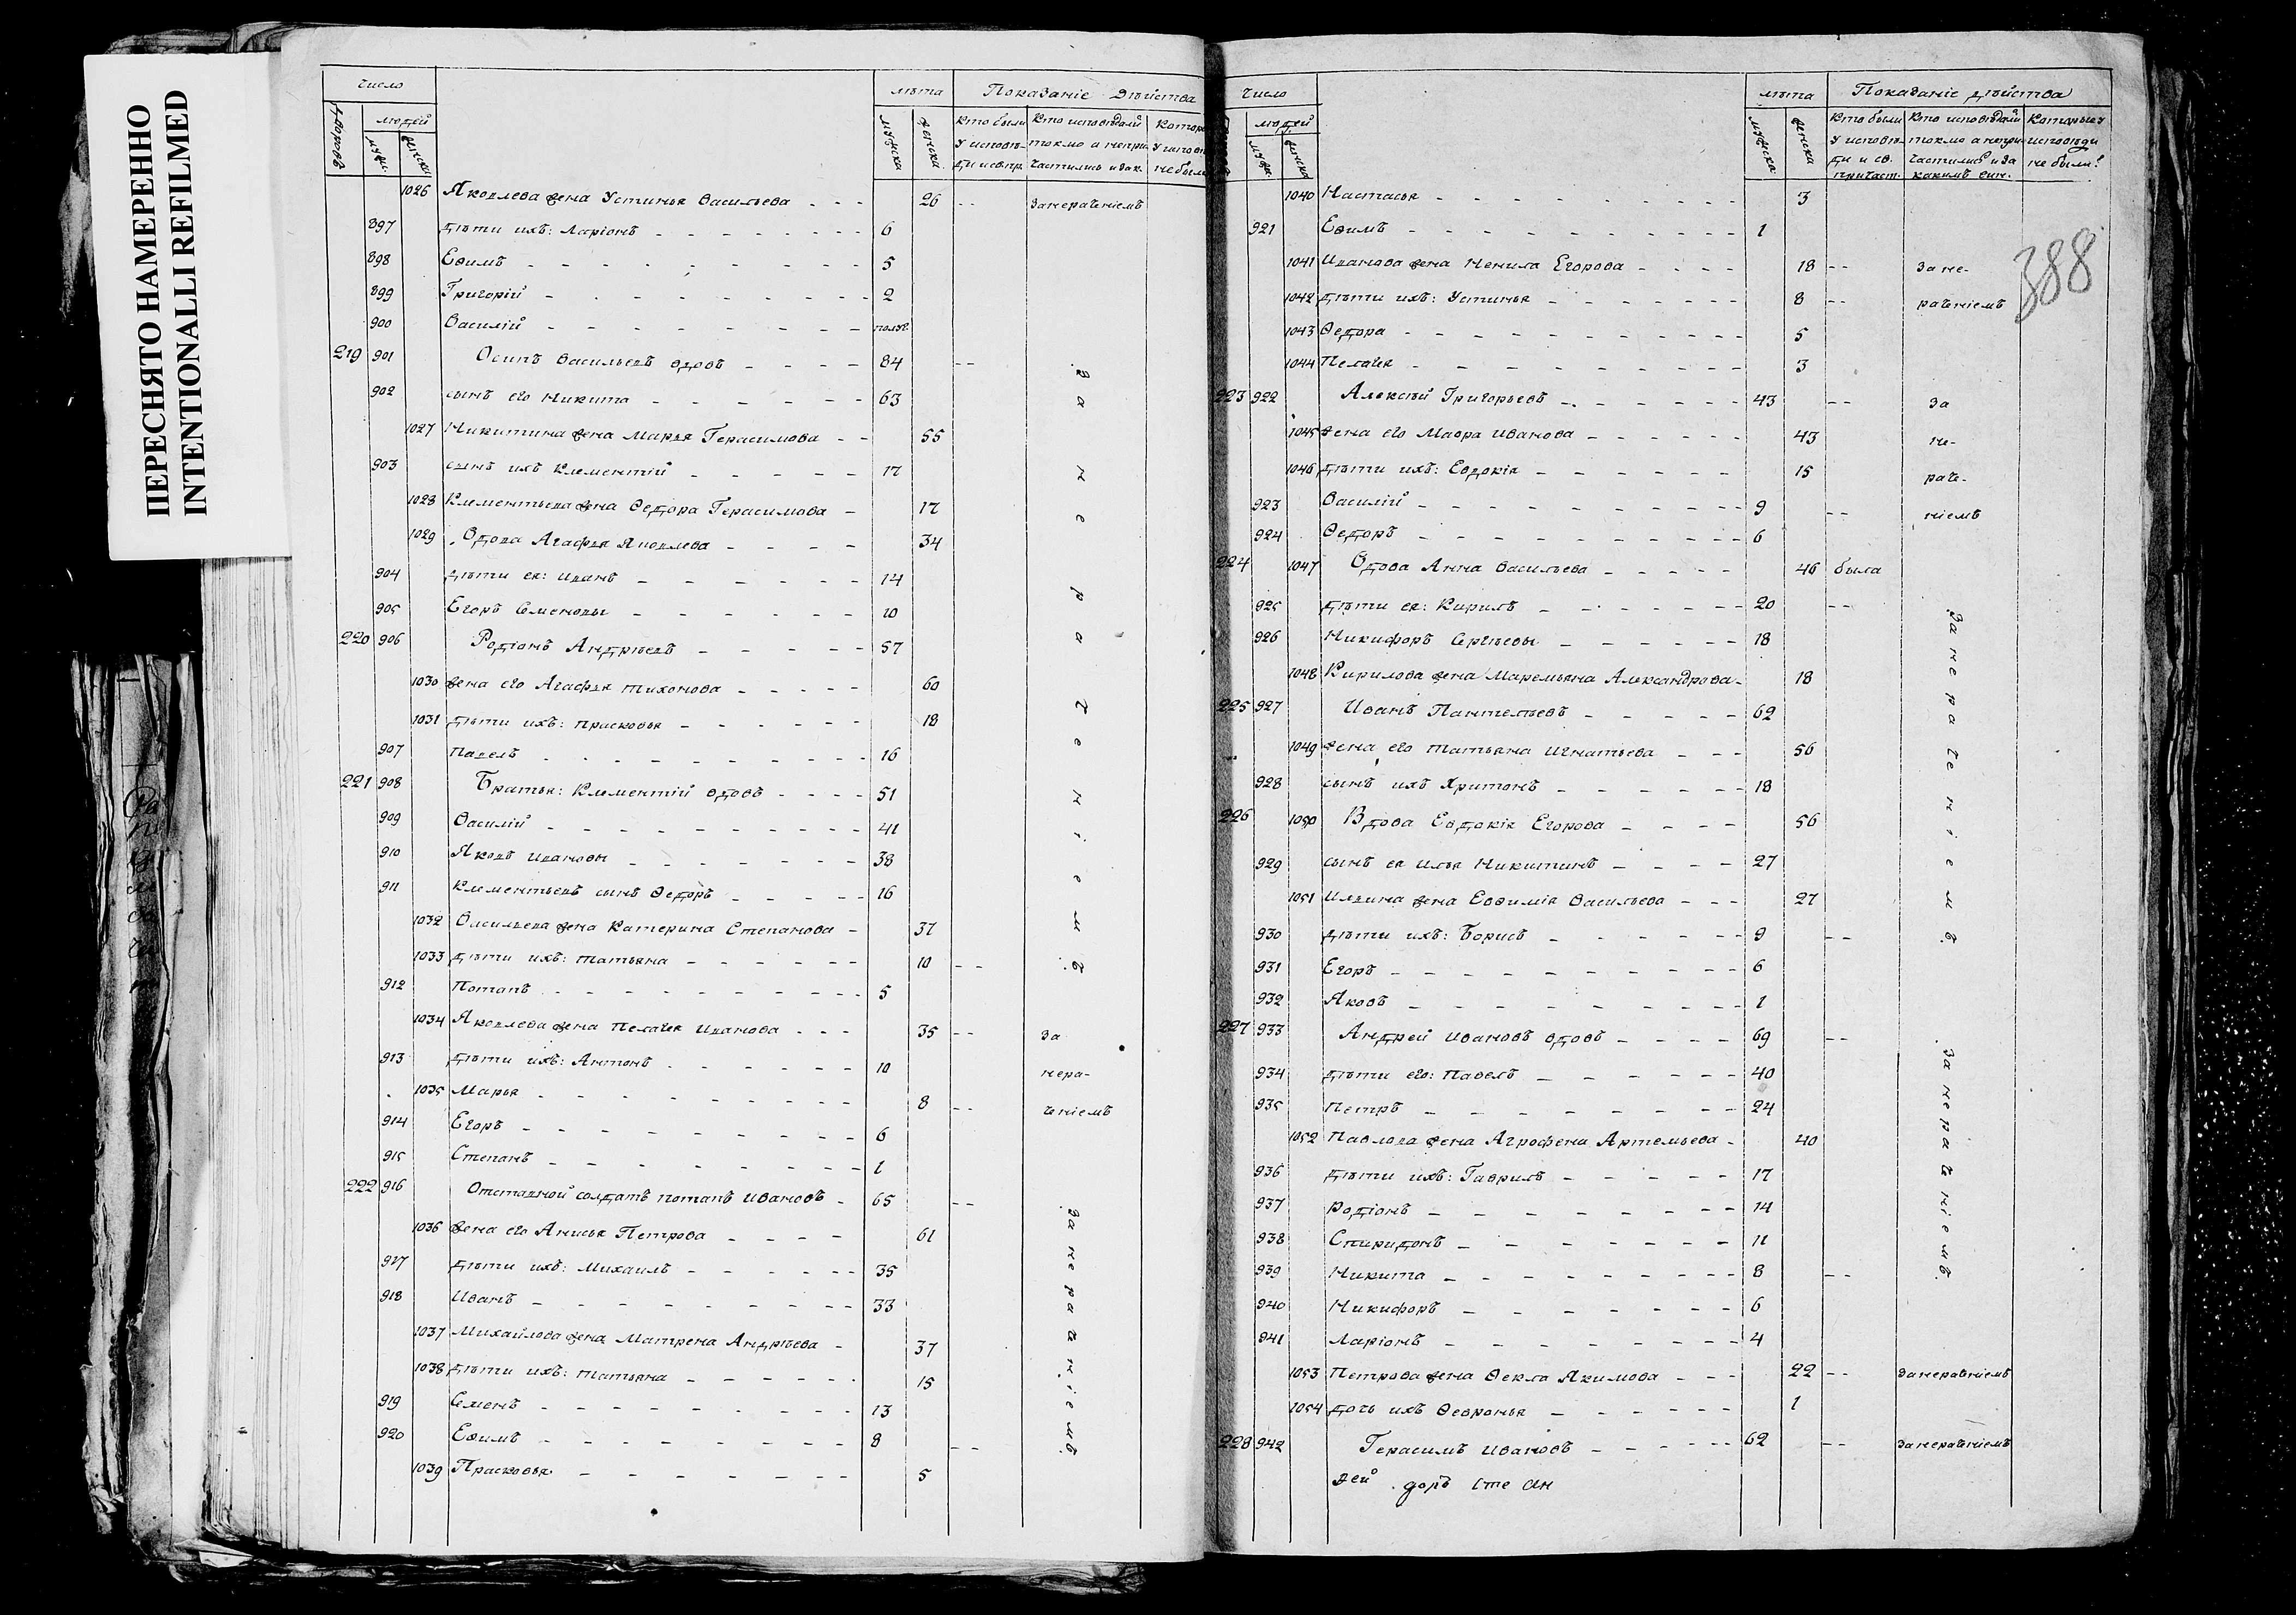 ПЕРЕСНЯТО НАМЕРЕННО
INTENTIONALLI REFILMED
Число лѣта Показаніе дѣйства
дворовъ людей
муж. женска мужска женска
Кто были у исповѣди и св. пр. Кто исповѣдали токмо а непричастились и как.
1026 Яковлева жена Устинья Васильева 26 -- Занераченіемъ
897 дѣти ихъ: Ларіонъ 6
898 Ефимъ 5
899 Григорій 2
900 Василій полуг.
219 901 Осипъ Васильевъ вдовъ 84 --
902 сынъ его Никита 63
1027 Никитина жена Марья Герасимова 55
903 сынъ ихъ Клементій 17
1028 Клементьева жена Ѳедора Герасимова 17
1029 Вдова Агафья Яковлева 34
904 дѣти ея: Иванъ 14
905 Егоръ Семеновы 10
220 906 Родіонъ Андрѣевъ 57
1030 жена его Агафья Тихонова 60
1031 дѣти ихъ: Прасковья 18
907 Павелъ 16
221 908 Братья: Клементій вдовъ 51
909 Василій 41
910 Яковъ Ивановы 38
911 Клементьевъ сынъ Ѳедоръ 16
1032 Васильева жена Катерина Степанова 37
1033 дѣти ихъ: Татьяна 10 --
За нераченіемъ
912 Потапъ 5
1034 Яковлева жена Пелагея Иванова 35 -- За
913 дѣти ихъ: Антонъ 10 нера-
1035 Марья 8 -- ченіемъ
914 Егоръ 6
915 Степанъ 1
222 916 Отставной солдатъ Потапъ Ивановъ 65 --
1036 жена его Анисья Петрова 61
917 дѣти ихъ: Михаилъ 35
918 Иванъ 33
1037 Михайлова жена Матрена Андрѣева 37
1038 дѣти ихъ: Татьяна 15
919 Семенъ 13
920 Ефимъ 8 --
За нераченіемъ
1039 Прасковья 5
Число лѣта Показаніе дѣйства
людей
муж. женска мужска женска
Кто были у исповѣди и св. причаст. Кто исповѣдали токмо а непричастились и за какимъ вин. Которые у исповѣди не были?
388
1040 Настасья 3
921 Ефимъ 1
1041 Иванова жена Ненила Егорова 18 -- За не-
1042 дѣти ихъ: Устинья 8 -- раченіемъ
1043 Ѳедора 5
1044 Пелагея 3
223 922 Алексѣй Григорьевъ 43 -- За
1045 жена его Мавра Иванова 43 не-
1046 дѣти ихъ: Евдокія 15 раче-
923 Василій 9 -- ніемъ
924 Ѳедоръ 6
224 1047 Вдова Анна Васильева 46 была
925 дѣти ея: Кирилъ 20 --
926 Никифоръ Сергѣевы 18
1048 Кирилова жена Маремьяна Александрова 18
225 927 Иванъ Пантелѣевъ 62
1049 жена его Татьяна Игнатьева 56
928 сынъ ихъ Хритонъ 18
226 1050 Вдова Евдокія Егорова 56
929 сынъ ея Илья Никитинъ 27
1051 Ильина жена Евфимія Васильева 27
930 дѣти ихъ: Борисъ 9 --
За нераченіемъ
931 Егоръ 6
932 Яковъ 1
227 933 Андрей Ивановъ вдовъ 69 --
934 дѣти его: Павелъ 40
935 Петръ 24
1052 Павлова жена Агрофена Артемьева 40
936 дѣти ихъ: Гаврилъ 17
937 Родіонъ 14
938 Спиридонъ 11
939 Никита 8 --
За нераченіемъ
940 Никифоръ 6
941 Ларіонъ 4
1053 Петрова жена Ѳекла Якимова 22 -- Занераченіемъ
1054 дочь ихъ Ѳевронья 1
228 942 Герасимъ Ивановъ 62 -- Занераченіемъ